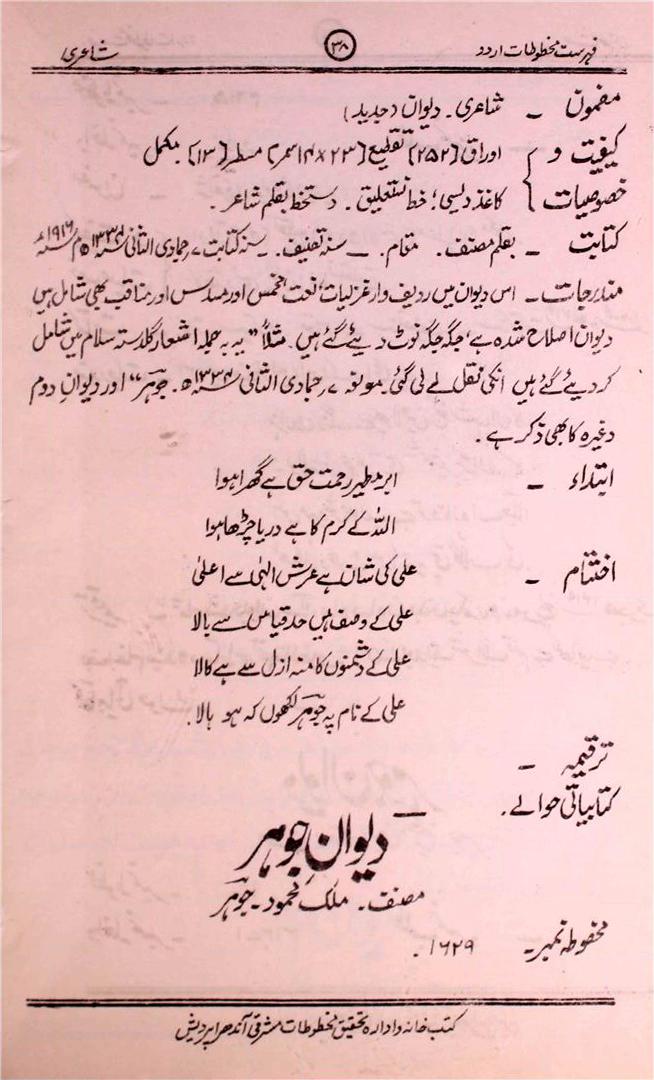 فہرست مخطوطات اردو ۳۸ شاعری
مضمون ۔ شاعری ۔ دیوان (جدید)
کیفیت و خصوصیات { اوراق [۲۵۲] تقطیع [۲۳×۱۴ سمر] مسطر [۱۳] مکمل
کاغذ دیسی؛ خط نستعلیق ۔ دستخط بقلم شاعر ۔
کتابت ۔ بقلم مصنف ۔ مقام ۔ ــ سنہ تصنیف ۔ ــ سنہ کتابت ۷؍ جمادی الثانی ۱۳۳۴ھ م ۱۹۱۶ء
مندرجات ۔ اس دیوان میں ردیف وار غزلیات، نعت، مخمس اور مسدس اور مناقب بھی شامل ہیں
دیوان اصلاح شدہ ہے، جگہ جگہ نوٹ دیئے گئے ہیں ۔ مثلاً " یہ جملہ اشعار گلدستہ سلام میں شامل
کر دیئے گئے ہیں انکی نقل لے لی گئی ۔ مولفہ ۷؍ جمادی الثانی ۱۳۳۴ھ ۔ جوہر " اور دیوانِ دوم
وغیرہ کا بھی ذکر ہے ۔
ابتداء ۔ ابر مطیر رحمت حق ہے گھرا ہوا
اللہ کے کرم کا ہے دریا چڑھا ہوا
اختتام ۔ علی کی شان ہے عرش الٰہی سے اعلیٰ
علی کے وصف ہیں حد قیاس سے بالا
علی کے دشمنوں کا منہ ازل سے ہے کالا
علی کے نام پہ جوہر لکھوں کہ ہو بالا ۔
ترقیمہ ۔
کتابیاتی حوالے ۔ ــ
دیوانِ جوہر
مصنف ۔ ملک محمود ۔ جوہر
مخطوطہ نمبر ۔ ۱۶۲۹ ۔
کتب خانہ و ادارہ تحقیق مخطوطات مشرقی آندھرا پردیش